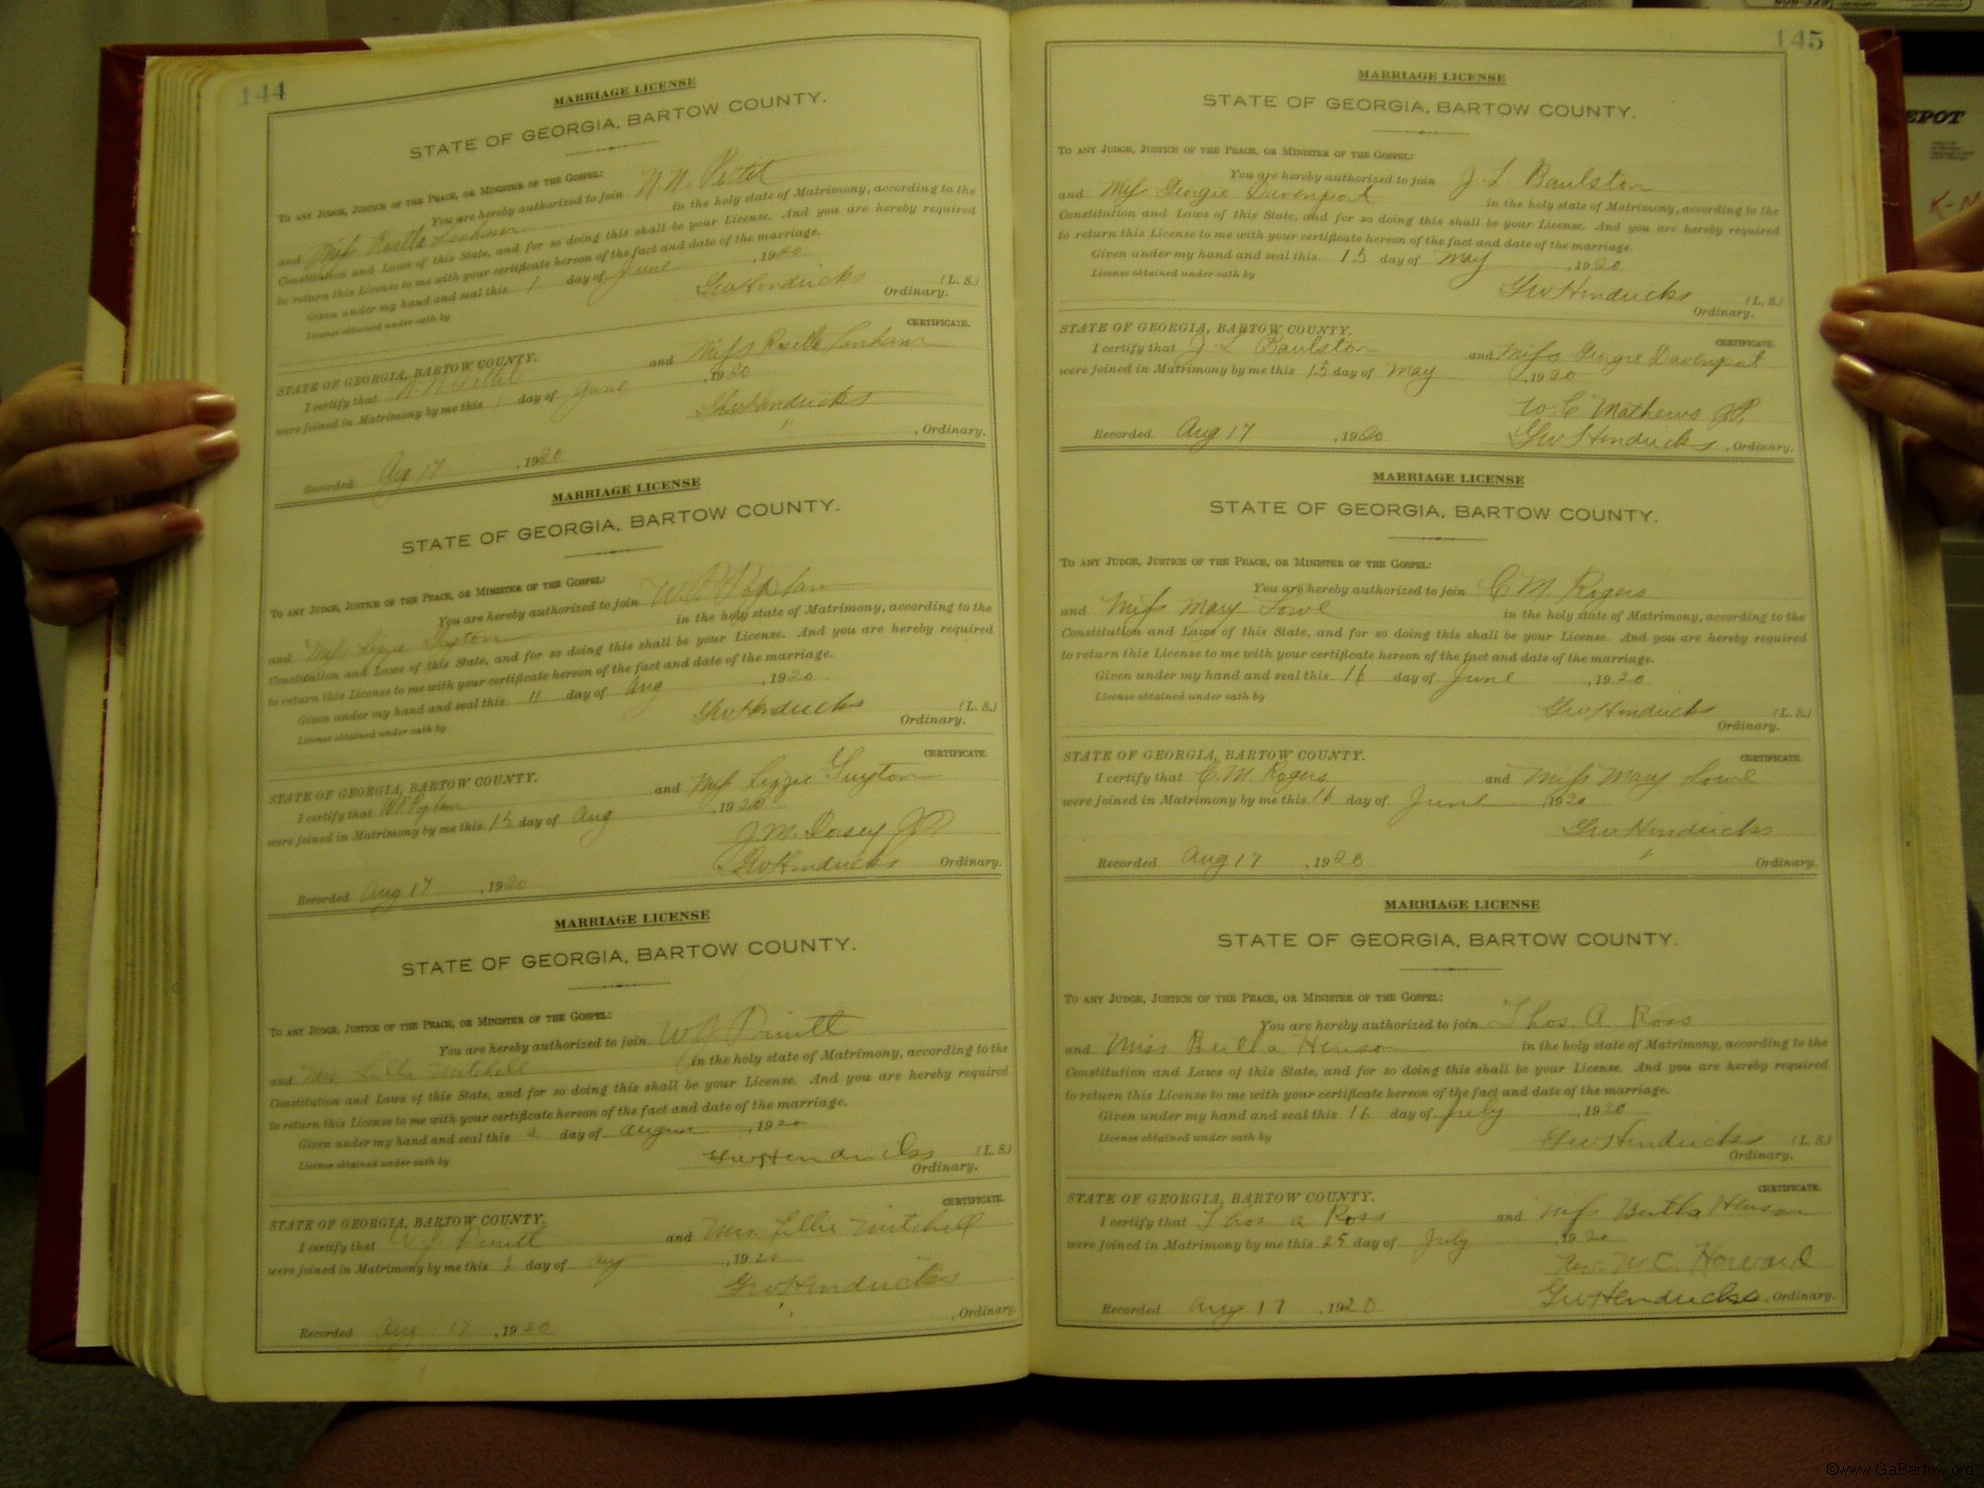 144
MARRIAGE LICENSE
STATE OF GEORGIA, BARTOW COUNTY.
TO ANY JUDGE, JUSTICE OF THE PEACE, OR MINISTER OF THE GOSPEL:
You are hereby authorized to join
and Miss in the holy state of Matrimony, according to the
Constitution and Laws of this State, and for so doing this shall be your License. And you are hereby required
to return this License to me with your certificate hereon of the fact and date of the marriage.
Given under my hand and seal this 1 day of June , 1920
License obtained under oath by
Geo Hendricks (L. S.)
Ordinary.
CERTIFICATE.
STATE OF GEORGIA, BARTOW COUNTY.
I certify that and Miss
were joined in Matrimony by me this day of June , 1920
Geo Hendricks
Recorded Aug 17 , 1920 , Ordinary.
MARRIAGE LICENSE
STATE OF GEORGIA, BARTOW COUNTY.
TO ANY JUDGE, JUSTICE OF THE PEACE, OR MINISTER OF THE GOSPEL:
You are hereby authorized to join W P
and Miss Lizzie Guyton in the holy state of Matrimony, according to the
Constitution and Laws of this State, and for so doing this shall be your License. And you are hereby required
to return this License to me with your certificate hereon of the fact and date of the marriage.
Given under my hand and seal this 11 day of Aug , 1920
License obtained under oath by
Geo Hendricks (L. S.)
Ordinary.
CERTIFICATE.
STATE OF GEORGIA, BARTOW COUNTY.
I certify that W P and Miss Lizzie Guyton
were joined in Matrimony by me this 15 day of Aug , 1920
J. M. Dorsey J.P.
Geo Hendricks Ordinary.
Recorded Aug 17 , 1920
MARRIAGE LICENSE
STATE OF GEORGIA, BARTOW COUNTY.
TO ANY JUDGE, JUSTICE OF THE PEACE, OR MINISTER OF THE GOSPEL:
You are hereby authorized to join W J Pruitt
and Mrs Lillie Mitchell in the holy state of Matrimony, according to the
Constitution and Laws of this State, and for so doing this shall be your License. And you are hereby required
to return this License to me with your certificate hereon of the fact and date of the marriage.
Given under my hand and seal this 2 day of August , 1920
License obtained under oath by
Geo Hendricks (L. S.)
Ordinary.
CERTIFICATE.
STATE OF GEORGIA, BARTOW COUNTY.
I certify that W J Pruitt and Mrs. Lillie Mitchell
were joined in Matrimony by me this day of Aug , 1920
Geo Hendricks
, Ordinary.
Recorded Aug 17 , 1920
145
MARRIAGE LICENSE
STATE OF GEORGIA, BARTOW COUNTY.
TO ANY JUDGE, JUSTICE OF THE PEACE, OR MINISTER OF THE GOSPEL:
You are hereby authorized to join J L Baulston
and Miss Georgie Davenport in the holy state of Matrimony, according to the
Constitution and Laws of this State, and for so doing this shall be your License. And you are hereby required
to return this License to me with your certificate hereon of the fact and date of the marriage.
Given under my hand and seal this 15 day of May , 1920
License obtained under oath by
Geo Hendricks (L. S.)
Ordinary.
CERTIFICATE.
STATE OF GEORGIA, BARTOW COUNTY.
I certify that J L Baulston and Miss Georgie Davenport
were joined in Matrimony by me this 15 day of May , 1920
W. C Mathews J.P.
Recorded Aug 17 , 1920 Geo Hendricks , Ordinary.
MARRIAGE LICENSE
STATE OF GEORGIA, BARTOW COUNTY.
TO ANY JUDGE, JUSTICE OF THE PEACE, OR MINISTER OF THE GOSPEL:
You are hereby authorized to join C. M. Rogers
and Miss Mary Lowe in the holy state of Matrimony, according to the
Constitution and Laws of this State, and for so doing this shall be your License. And you are hereby required
to return this License to me with your certificate hereon of the fact and date of the marriage.
Given under my hand and seal this 16 day of June , 1920
License obtained under oath by
Geo Hendricks (L. S.)
Ordinary.
CERTIFICATE.
STATE OF GEORGIA, BARTOW COUNTY.
I certify that C. M. Rogers and Miss Mary Lowe
were joined in Matrimony by me this 16 day of June , 1920
Geo Hendricks
Recorded Aug 17 , 1920 Ordinary.
MARRIAGE LICENSE
STATE OF GEORGIA, BARTOW COUNTY.
TO ANY JUDGE, JUSTICE OF THE PEACE, OR MINISTER OF THE GOSPEL:
You are hereby authorized to join Thos. A Ross
and Miss Bertha Henson in the holy state of Matrimony, according to the
Constitution and Laws of this State, and for so doing this shall be your License. And you are hereby required
to return this License to me with your certificate hereon of the fact and date of the marriage.
Given under my hand and seal this 16 day of July , 1920
License obtained under oath by
Geo Hendricks (L. S.)
Ordinary.
CERTIFICATE.
STATE OF GEORGIA, BARTOW COUNTY.
I certify that Thos A Ross and Miss Bertha Henson
were joined in Matrimony by me this 25 day of July , 1920
Rev. M. C. Howard
Recorded Aug 17 , 1920 Geo Hendricks , Ordinary.
EPOT
©www.GaBartow.org